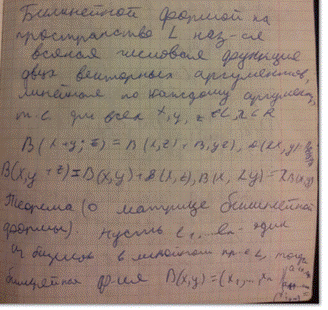 Билинейной формой на
пространстве L наз-ся
всякая числовая функция
двух векторных аргументов,
линейная по каждому аргументу,
т-е для всех x, y, z ∈ L, λ ∈ R
B(x+y; z) = B(x,z) + B(y,z),
B(x,y+z) = B(x,y) + B(x,z), B(x, λy) = λB(x,y)
Теорема (о матрице билинейной
формы). Пусть e₁...en - один
из базисов в линейном пр-ве L, тогда
билинейная ф-ия B(x,y) =